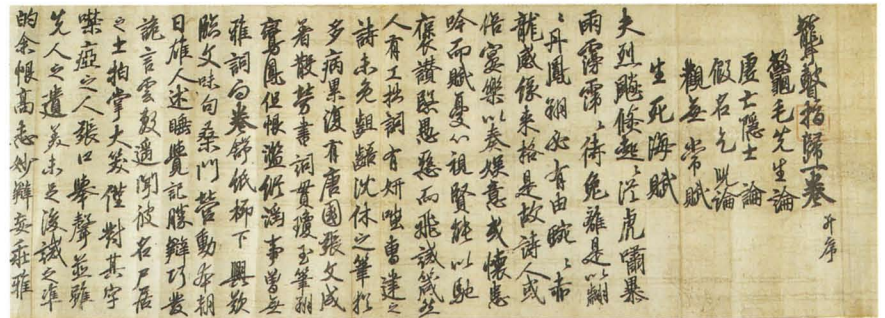 聾瞽指歸一卷 并序
龜毛先生論
虛亡隱士論
假名乞兒論
觀無常賦
生死海賦
夫烈飈倐起從虎嘯暴
雨霶霈待兔離是以翩
〻丹鳳翔必有由蜿〻赤
龍感徐來格是故詩人或
宴樂以奏娛意或懷患
吟而賦憂心視賢能以馳
褒讚覩愚惡而飛誡箴然
人有工拙詞有妍蚩曹建之
詩未免齟齬沈休之筆猶
多病累復有唐國張文成
著散勞書詞貫瓊玉筆翔
鸞鳳但恨濫縱淫事曾無
雅詞面卷舒紙柳下興歎
臨文味句桑門營動本朝
日雄人述睡覺記勝辯巧發
詭言雲敷遙聞彼名尸居
之士拍掌大笑僅對其字
噤瘂之人張口舉聲並雖
先人之遺美未足後誡之准
的余恨高志妙辯妄乖雅